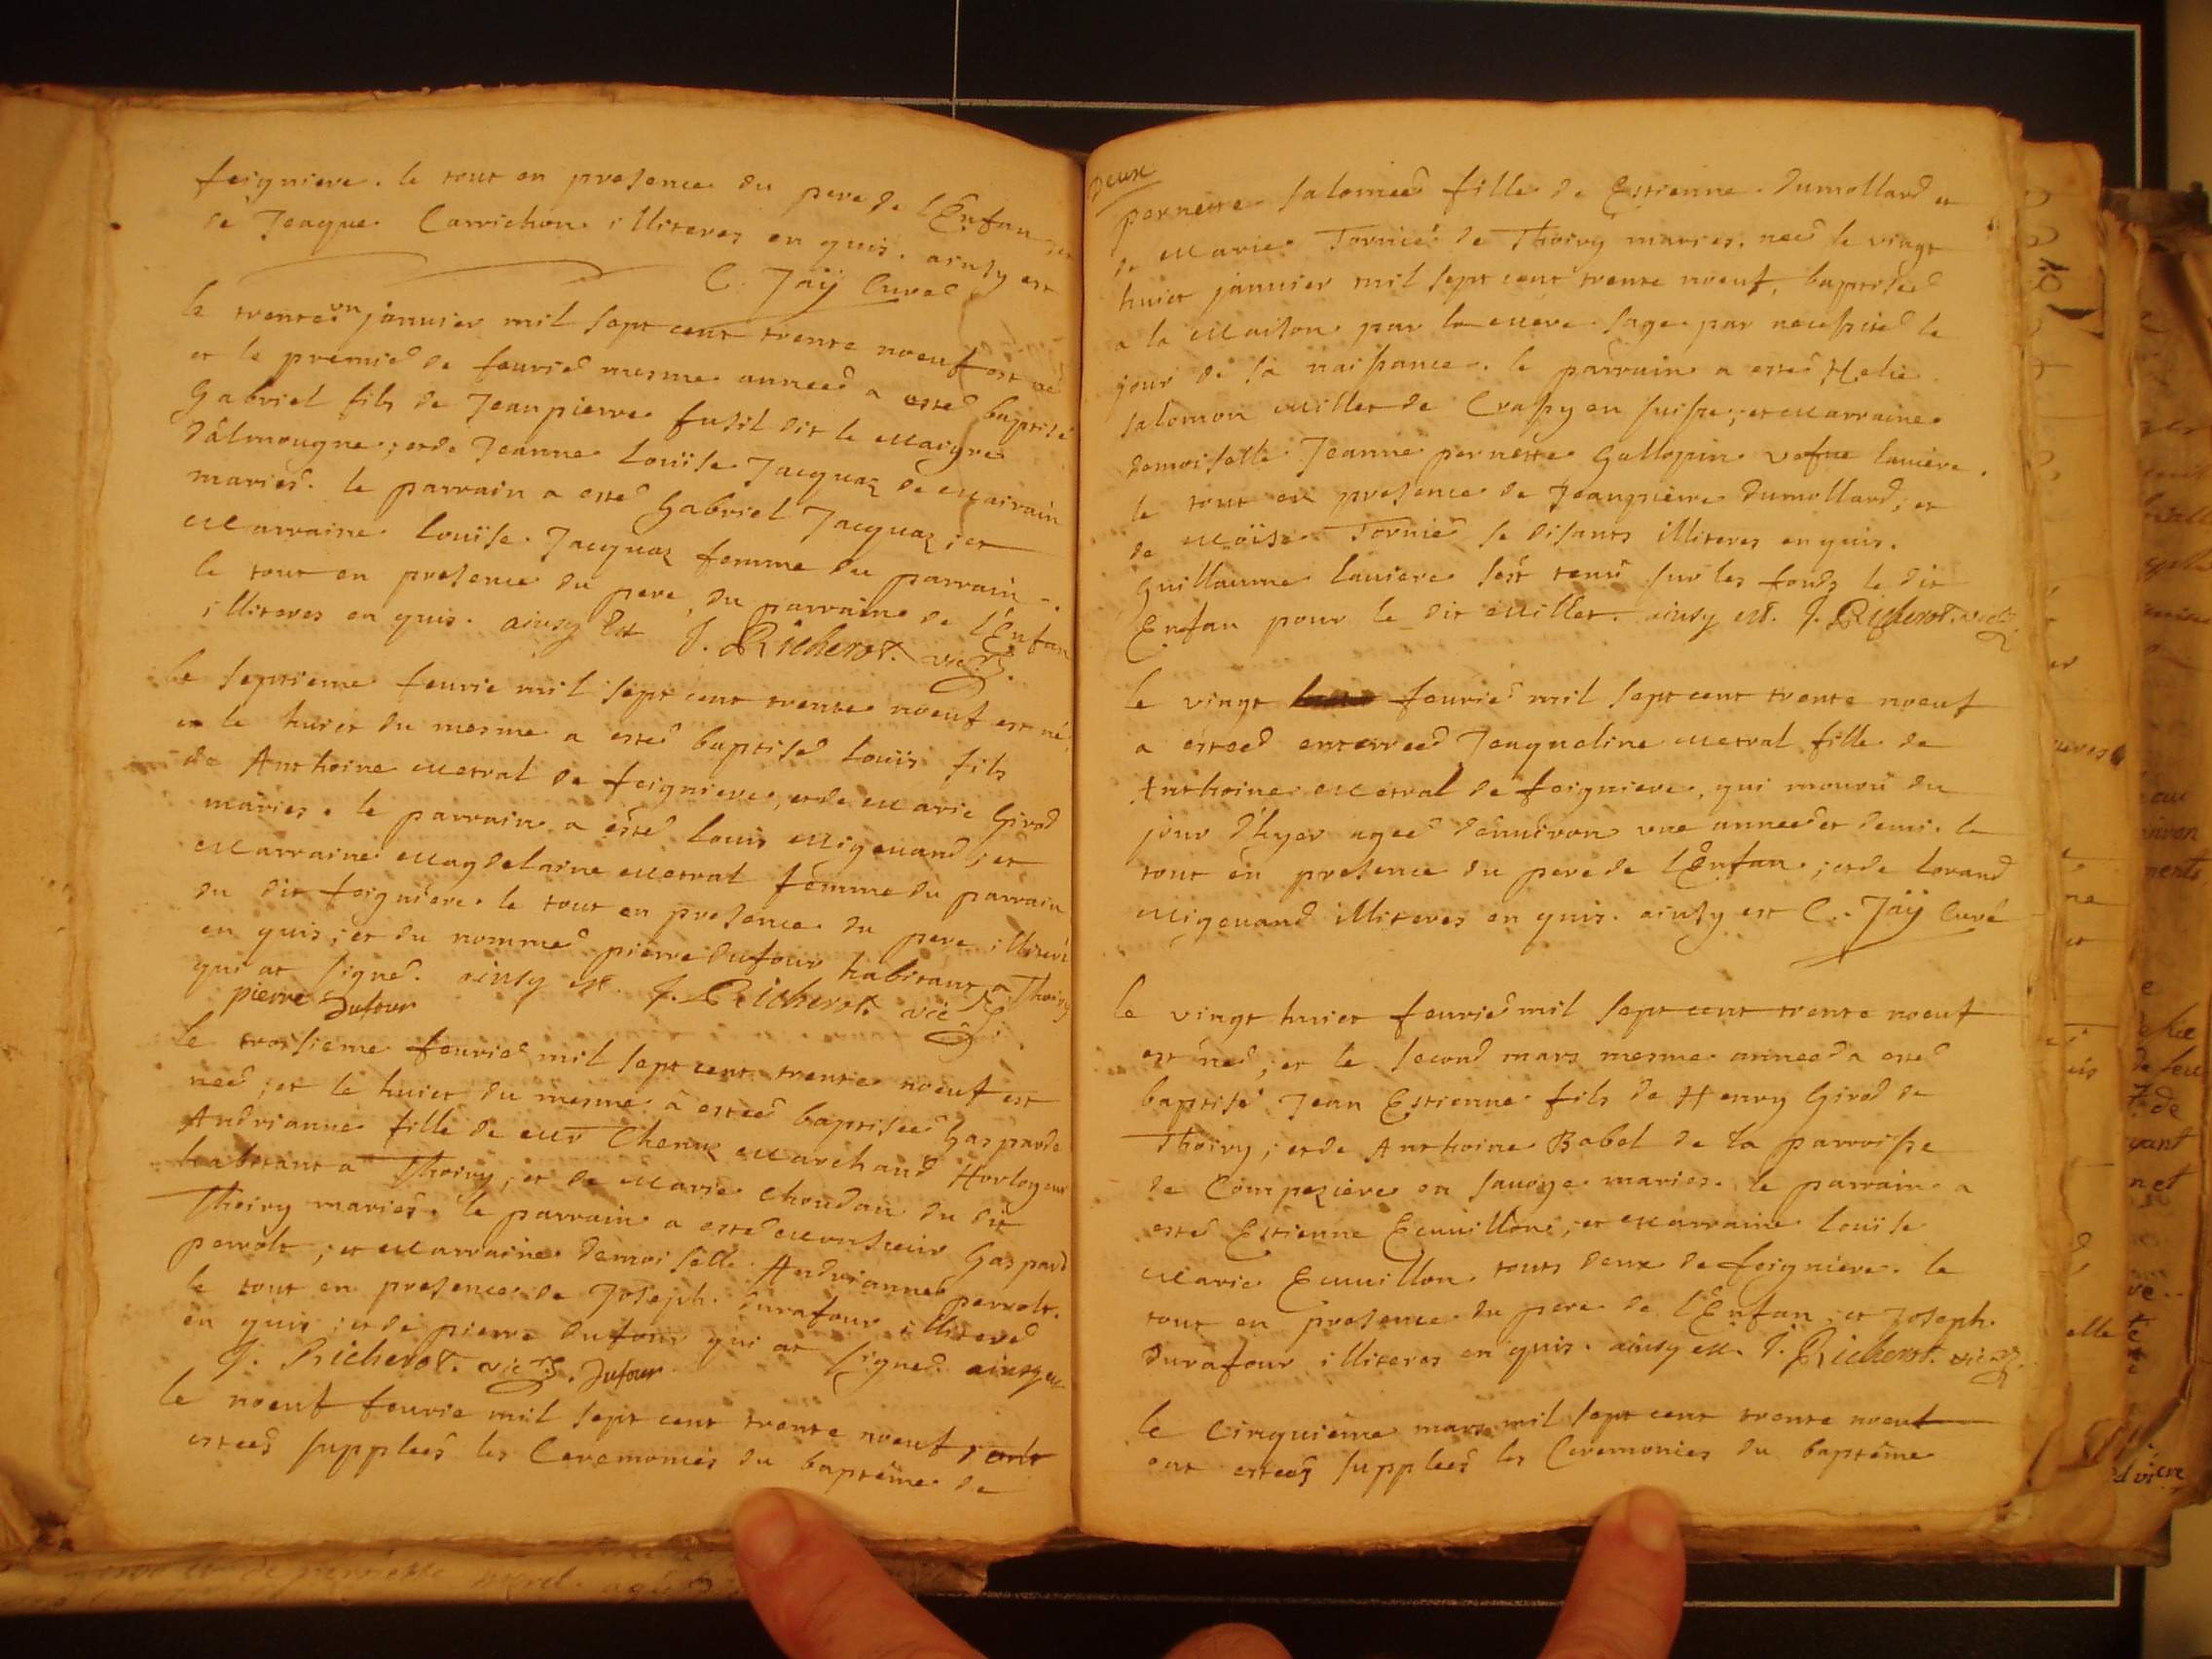 feigniere. le tout en presence du pere de l'Enfan et
de Jeaque Carrichon illiteres en quis. ainsy est
C. Jaÿ Curé
le trente un janvier mil sept cent trente noeuf est né
et le premié de fevrié mesme année a esté baptisé
Gabriel fils de Jean pierre fusil dit le Maigre
d'âlmougne; et de Jeanne Louïse Jacquaz de Mairain
mariés. le parrain a esté Gabriel Jacquaz; et
Marraine Louïse Jacquaz femme du parrain.
le tout en presence du pere, du parrain de l'Enfan
illiteres en quis. ainsy est J. Richerot. vic.re
le septieme fevrie mil sept cent trente noeuf est né,
et le huict du mesme a esté baptisé Louïs fils
de Anthoine Metral de feigniere, et de Marie Girod
mariés. le parrain a esté Louis Migevand; et
Marraine Magdelaine Metral femme du parrain
du dit feigniere. le tout en presence du pere illiteré
en quis; et du nommé pierre Dufour habitant a Thoiry
qui at signé. ainsy est. J. Richerot. vic.re
pierre Dufour
le troisieme fevrié mil sept cent trente noeuf est
née; et le huict du mesme a estée baptisée Gasparde
Andrianne fille de Mr Chenux Marchand Horlogeur
habitant a Thoiry, et de Marie Choudan du dit
Thoiry mariés. le parrain a esté Monsieur Gaspard
perrolt; et Marraine demoiselle Andrianne perrolt.
le tout en presence de Joseph durafour illiteré
en quis; et de pierre Dufour qui at signé. ainsy est
J. Richerot. vic.re. Dufour
le noeuf fevrie mil sept cent trente noeuf; ont
estées supplées les Ceremonies du baptême de
Deux
pernette Salomée fille de Estienne Dumollard et
de Marie Tornié de Thoiry maries. née le vingt
huict janvier mil sept cent trente noeuf, baptisée
a la Maison par la Mere Sage par necessité le
jour de sa naissance. le parrain a esté Helie
Salomon Millet de Crassy en suisse; et Marraine
demoiselle Jeanne pernette Gallopin vefue laniere.
le tout en presence de Jeanpierre Dumollard; et
de Moïse Tornié se disants illiteres en quis.
Guillaume laniere s'est tenu sur les fonds le dit
Enfan pour le dit Millet. ainsy est. J. Richerot. vic.re
le vingt fevrié mil sept cent trente noeuf
a estéé enterreé Jeaqueline Metral fille de
Anthoine Metral de feigniere, qui mouru du
jour d'hyer ageé d'environ une année et demi. le
tout en presence du pere de l'Enfan; et de Lorand
Migevand illiteres en quis. ainsy est C. Jaÿ Curé
le vingt huict fevrié mil sept cent trente noeuf
est né; et le second mars mesme année a esté
baptisé Jean Estienne fils de Henry Girod de
Thoiry; et de Anthoine Babel de la parroisse
de Compeziere en savoye maries. le parrain a
esté Estienne Ecuuillon; et Marraine Louïse
Marie Ecuuillon touts deux de feigniere. le
tout en presence du pere de l'Enfan; et Joseph
durafour illiteres en quis. ainsy est. J. Richerot. vic.re
le Cinquieme mars mil sept cent trente noeuf
ont estées supplées les Ceremonies du baptême